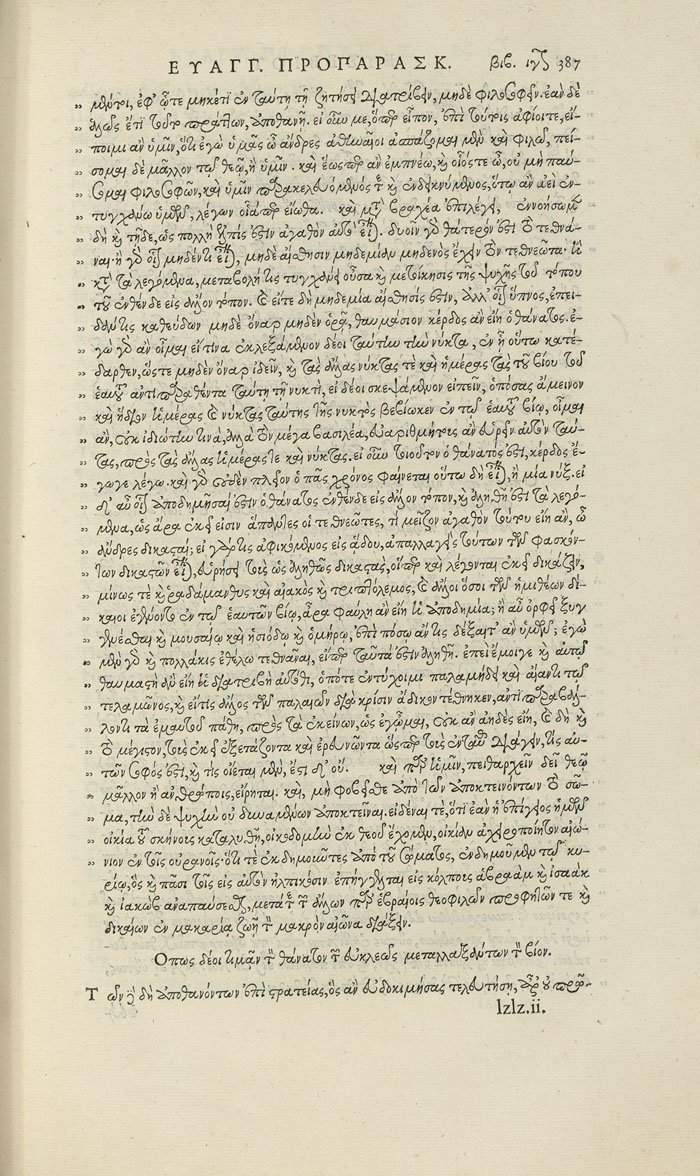 ΕΥΑΓΓ. ΠΡΟΠΑΡΑΣΚ. βιβ. ιγ 387
μέντοι, ἐφ' ᾧτε μηκέτι ἐν ταύτῃ τῇ ζητήσει διατρίβειν, μηδὲ φιλοσοφεῖν. ἐὰν δὲ
ἁλῷς ἔτι τοῦτο πράττων, ἀποθανῇ. εἰ οὖν με, ὅπερ εἶπον, ἐπὶ τούτοις ἀφίοιτε, εἴ-
ποιμι ἂν ὑμῖν, ὅτι ἐγὼ ὑμᾶς ὦ ἄνδρες ἀθηναῖοι ἀσπάζομαι μὲν καὶ φιλῶ, πεί-
σομαι δὲ μᾶλλον τῷ θεῷ, ἢ ὑμῖν. καὶ ἕωσπερ ἂν ἐμπνέω, καὶ οἷός τε ὦ, οὐ μὴ παύ-
σωμαι φιλοσοφῶν, καὶ ὑμῖν παρακελευόμενός τε καὶ ἐνδεικνύμενος, ὅτῳ ἂν ἀεὶ ἐν-
τυγχάνω ὑμῶν, λέγων οἷάπερ εἴωθα. καὶ μετὰ βραχέα ἐπιλέγει, ἐννοήσωμεν
δὴ καὶ τῇδε, ὡς πολλὴ ἐλπίς ἐστιν ἀγαθὸν αὐτὸ εἶναι. δυοῖν γὰρ θάτερόν ἐστι τὸ τεθνά-
ναι· ἢ γὰρ οἷον μηδέν τι εἶναι, μηδὲ αἴσθησιν μηδεμίαν μηδενὸς ἔχειν τὸν τεθνεῶτα· ἢ
κατὰ τὰ λεγόμενα, μεταβολή τις τυγχάνει οὖσα καὶ μετοίκησις τῆς ψυχῆς τοῦ τόπου
τοῦ ἐνθένδε εἰς ἄλλον τόπον. καὶ εἴτε δὴ μηδεμία αἴσθησίς ἐστιν, ἀλλ' οἷον ὕπνος, ἐπει-
δάν τις καθεύδων μηδὲ ὄναρ μηδὲν ὁρᾷ, θαυμάσιον κέρδος ἂν εἴη ὁ θάνατος. ἐ-
γὼ γὰρ ἂν οἶμαι εἴ τινα ἐκλεξάμενον δέοι ταύτην τὴν νύκτα, ἐν ᾗ οὕτω κατέ-
δαρθεν, ὥστε μηδὲν ὄναρ ἰδεῖν, καὶ τὰς ἄλλας νύκτας τε καὶ ἡμέρας τὰς τοῦ βίου τοῦ
ἑαυτοῦ ἀντιπαραθέντα ταύτῃ τῇ νυκτὶ, εἰ δέοι σκεψάμενον εἰπεῖν, ὁπόσας ἄμεινον
καὶ ἥδιον ἡμέρας καὶ νύκτας ταύτης τῆς νυκτὸς βεβίωκεν ἐν τῷ ἑαυτοῦ βίῳ, οἶμαι
ἂν, οὐκ ἰδιώτην τινὰ, ἀλλὰ τὸν μέγα βασιλέα, εὐαριθμήτους ἂν εὑρεῖν αὐτὸν ταύ-
τας, πρὸς τὰς ἄλλας ἡμέρας τε καὶ νύκτας. εἰ οὖν τοιοῦτον ὁ θάνατός ἐστι, κέρδος ἔ-
γωγε λέγω. καὶ γὰρ οὐδὲν πλεῖον ὁ πᾶς χρόνος φαίνεται οὕτω δὴ εἶναι, ἢ μία νύξ. εἰ
δ' αὖ οἷον ἀποδημῆσαί ἐστιν ὁ θάνατος ἐνθένδε εἰς ἄλλον τόπον, καὶ ἀληθῆ ἐστι τὰ λεγό-
μενα, ὡς ἄρα ἐκεῖ εἰσιν ἅπαντες οἱ τεθνεῶτες, τί μεῖζον ἀγαθὸν τούτου εἴη ἂν, ὦ
ἄνδρες δικασταί; εἰ γάρ τις ἀφικόμενος εἰς ᾅδου, ἀπαλλαγεὶς τούτων τῶν φασκόν-
των δικαστῶν εἶναι, εὑρήσει τοὺς ὡς ἀληθῶς δικαστὰς, οἵπερ καὶ λέγονται ἐκεῖ δικάζειν,
μίνως τε καὶ ῥαδάμανθυς καὶ αἰακὸς καὶ τριπτόλεμος, καὶ ἄλλοι ὅσοι τῶν ἡμιθέων δί-
καιοι ἐγένοντο ἐν τῷ ἑαυτῶν βίῳ, ἆρα φαύλη ἂν εἴη ἡ ἀποδημία; ἢ αὖ ὀρφεῖ ξυγ-
γενέσθαι καὶ μουσαίῳ καὶ ἡσιόδῳ καὶ ὁμήρῳ, ἐπὶ πόσῳ ἄν τις δέξαιτ' ἂν ὑμῶν; ἐγὼ
μὲν γὰρ καὶ πολλάκις ἐθέλω τεθνάναι, εἴπερ ταῦτά ἐστιν ἀληθῆ. ἐπεὶ ἔμοιγε καὶ αὐτῷ
θαυμαστὴ ἂν εἴη ἡ διατριβὴ αὐτόθι, ὁπότε ἐντύχοιμι παλαμήδει καὶ αἴαντι τῷ
τελαμῶνος, καὶ εἴ τις ἄλλος τῶν παλαιῶν διὰ κρίσιν ἄδικον τέθνηκεν, ἀντιπαραβάλ-
λοντι τὰ ἐμαυτοῦ πάθη, πρὸς τὰ ἐκείνων, ὡς ἐγᾦμαι, οὐκ ἂν ἀηδὲς εἴη, καὶ δὴ καὶ
τὸ μέγιστον, τοὺς ἐκεῖ ἐξετάζοντα καὶ ἐρευνῶντα ὥσπερ τοὺς ἐνταῦθα διάγειν, τίς αὐ-
τῶν σοφός ἐστι, καὶ τίς οἴεται μὲν, ἔστι δ' οὔ. καὶ παρ' ἡμῖν, πειθαρχεῖν δεῖ θεῷ
μᾶλλον ἢ ἀνθρώποις, εἴρηται. καὶ, μὴ φοβεῖσθε ἀπὸ τῶν ἀποκτεινόντων τὸ σῶ-
μα, τὴν δὲ ψυχὴν οὐ δυναμένων ἀποκτεῖναι. εἰδέναι τε, ὅτι ἐὰν ἡ ἐπίγειος ἡμῶν
οἰκία τοῦ σκήνους καταλυθῇ, οἰκοδομὴν ἐκ θεοῦ ἔχομεν, οἰκίαν ἀχειροποίητον αἰώ-
νιον ἐν τοῖς οὐρανοῖς· ὅτι τε ἐκδημοῦντες ἀπὸ τοῦ σώματος, ἐνδημοῦμεν τῷ κυ-
ρίῳ, ὃς καὶ πᾶσι τοῖς εἰς αὐτὸν ἠλπικόσιν ἐπήγγελται εἰς κόλποις ἀβραὰμ καὶ ἰσαὰκ
καὶ ἰακὼβ ἀναπαύσεσθαι, μετά τε τῶν ἄλλων παρ' ἑβραίοις θεοφιλῶν προφητῶν τε καὶ
δικαίων ἐν μακαρίᾳ ζωῇ τὸν μακρὸν αἰῶνα διάξειν.
Ὅπως δέοι τιμᾶν τὸν θάνατον τῶν εὐκλεῶς μεταλλαξάντων τὸν βίον.
Τῶν δὲ δὴ ἀποθανόντων ἐπὶ στρατείας, ὃς ἂν εὐδοκιμήσας τελευτήσῃ, ἆρ' οὐ πρῶ-
lzlz.ii.